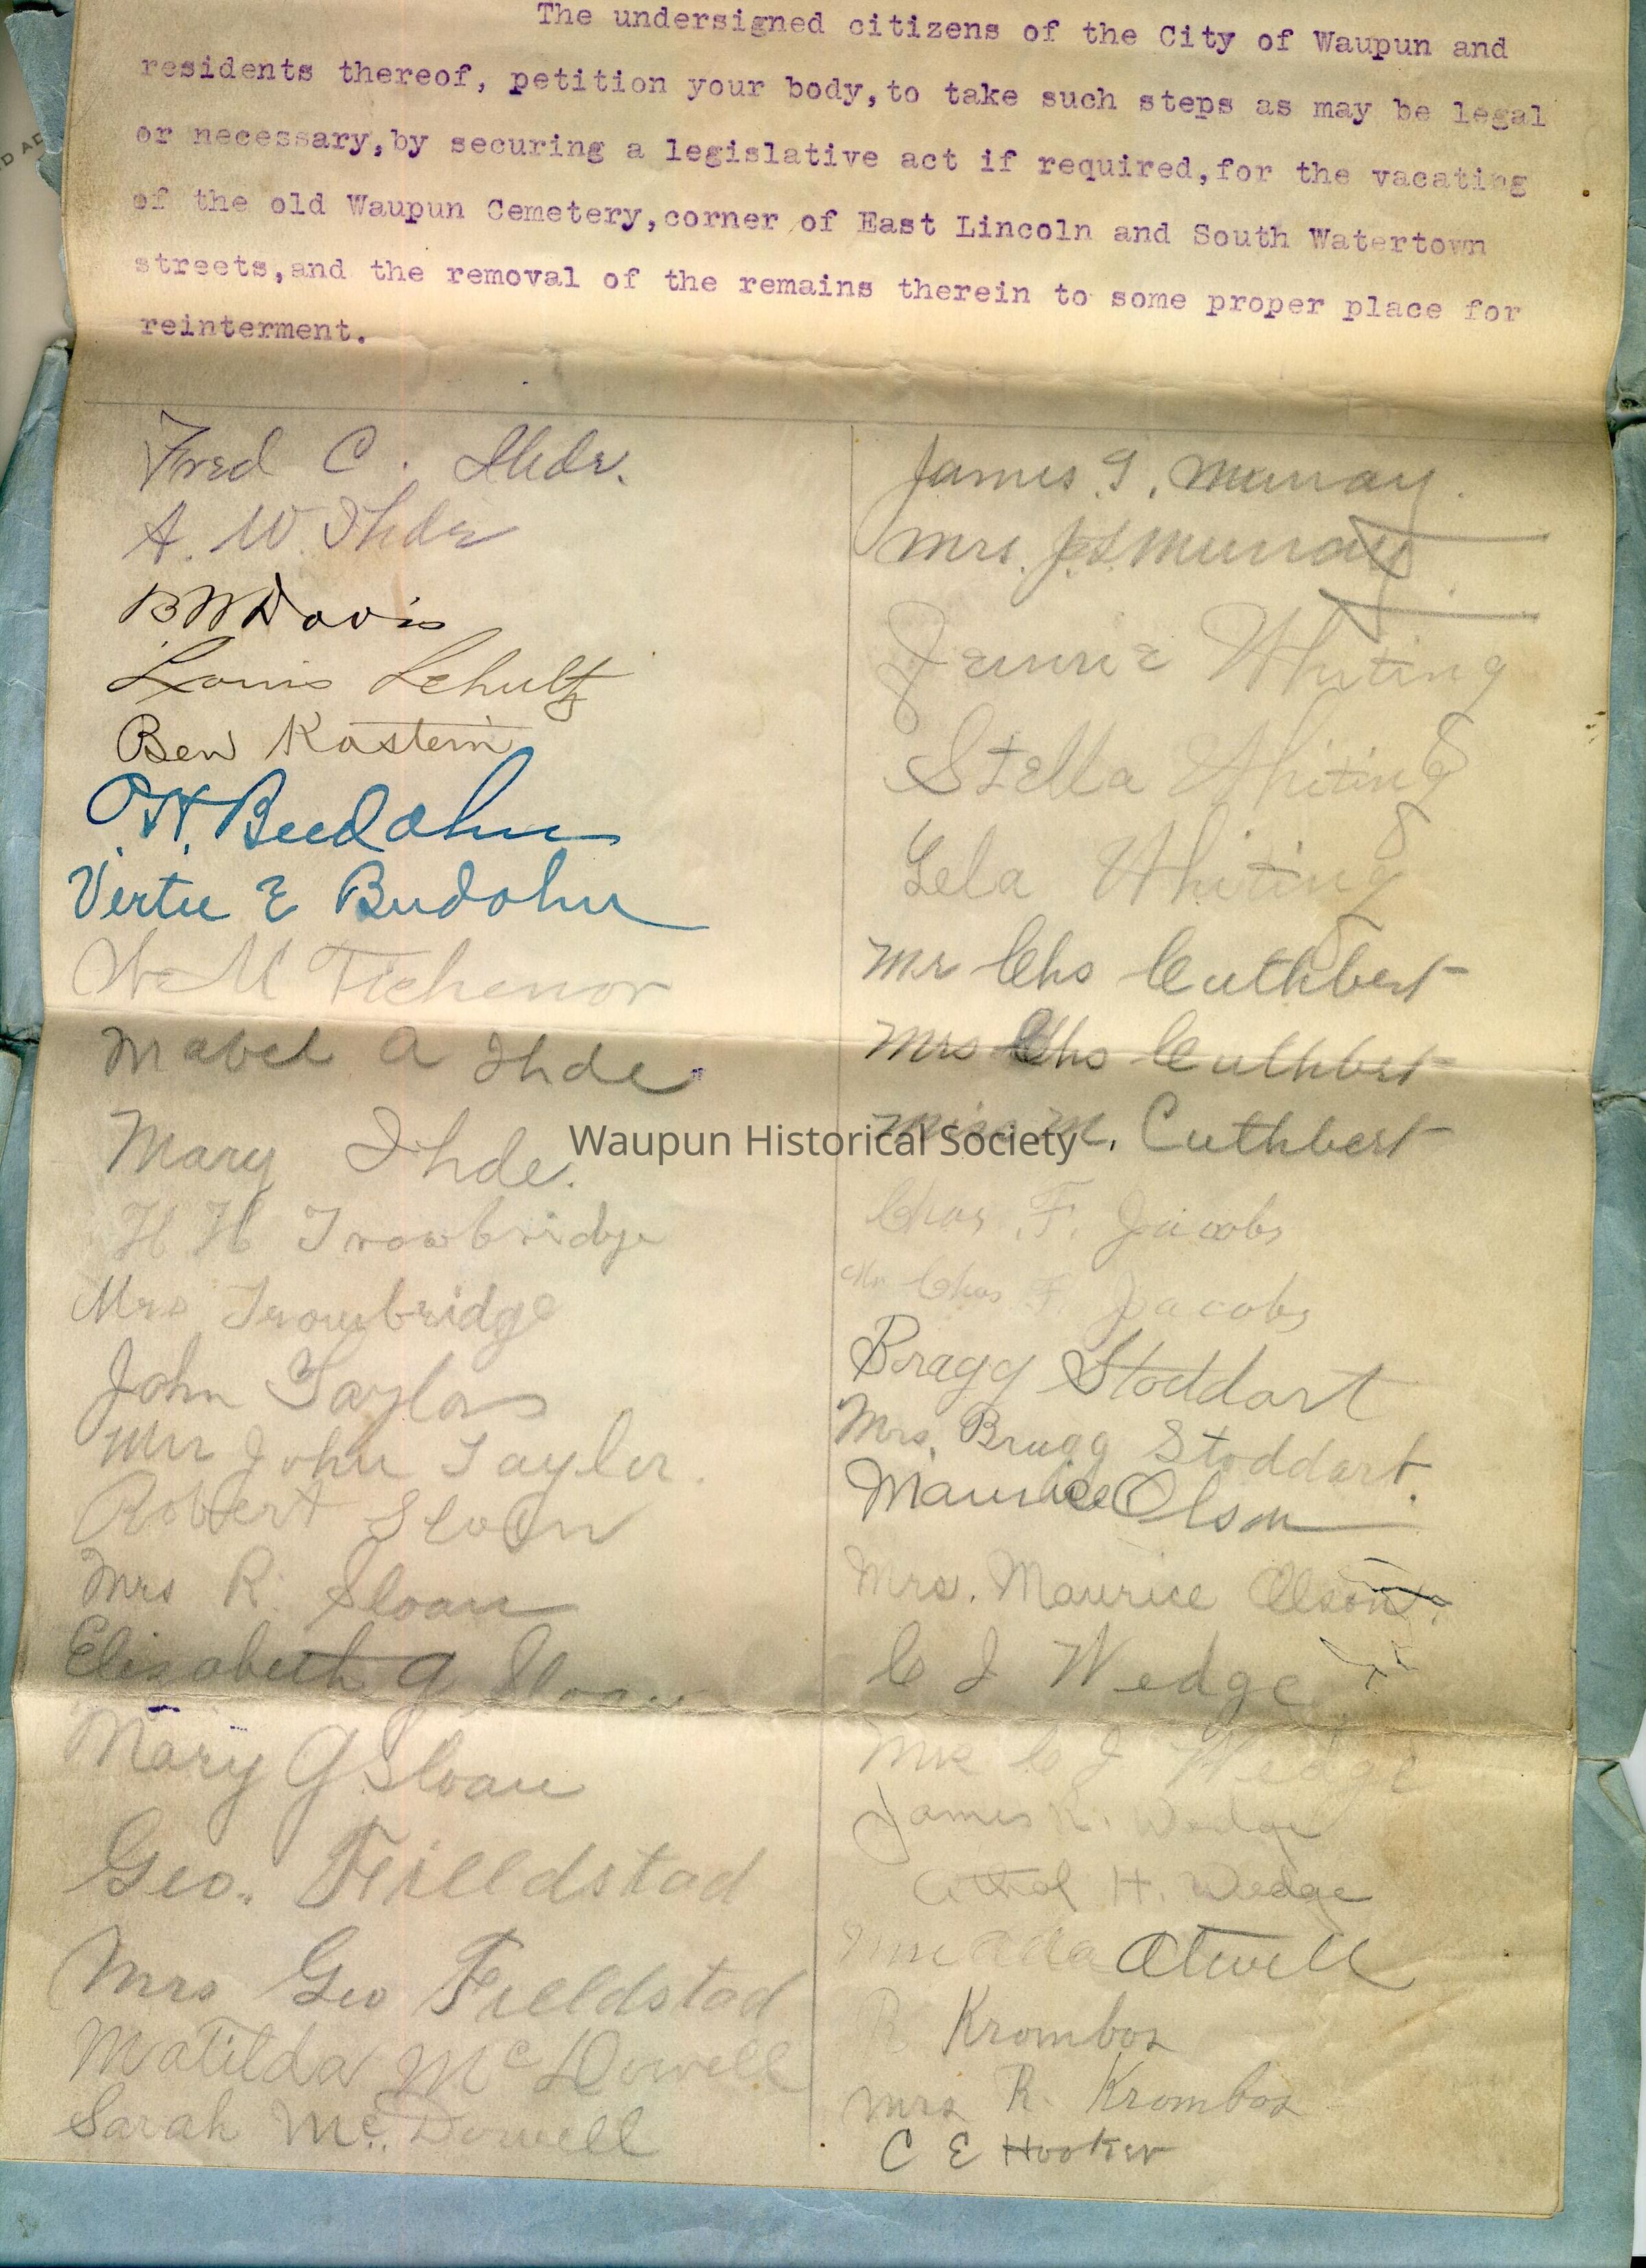 The undersigned citizens of the City of Waupun and
residents thereof, petition your body,to take such steps as may be legal
or necessary,by securing a legislative act if required,for the vacating
of the old Waupun Cemetery,corner of East Lincoln and South Watertown
streets,and the removal of the remains therein to some proper place for
reinterment.
Fred C. Ihde.
A. W. Ihde
B W Davis
Louis Schultz
Ben Kastein
O.H. Buedohn
E
M Tichenor
Mabel A Ihde
Mary Ihde.
H H Trowbridge
Mrs Trowbridge
John Taylor
Mrs John Taylor.
Robert Sloan
Mrs R. Sloan
Elizabeth G Sloan
Mary G Sloan
Geo. Feilldstad
Mrs Geo Fieldstad
Matilda McDowell
Sarah McDowell
James J. Murray.
Mrs. Murray
Jennie Whiting
Stella Whiting
Lela Whiting
Mr Chs Cuthbert
Mrs Chs Cuthbert
Miss M. Cuthbert
Waupun Historical Society
Chas. F. Jacobs
Mrs Chas F. Jacobs
Bragg Stoddart
Mrs. Bragg Stoddart.
Maurice Olson
Mrs. Maurice Olson.
C J Wedge
Mrs C J Wedge
James R. Wedge
H. Wedge
Ada Atwell
R Krombos
Mrs R. Krombos
C E Hooker